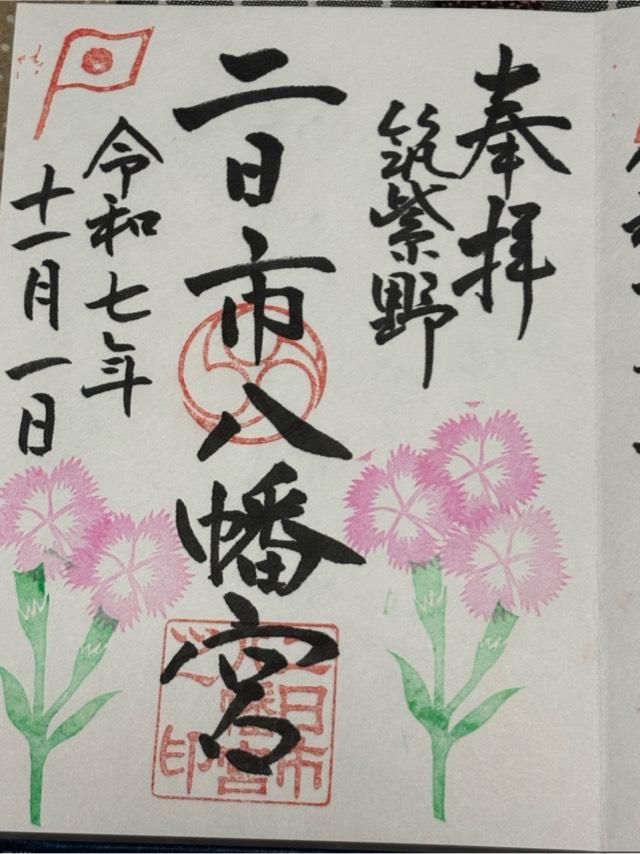 奉拝
筑紫野
二日市八幡宮
二日市
八幡宮
之印
令和七年
十一月一日